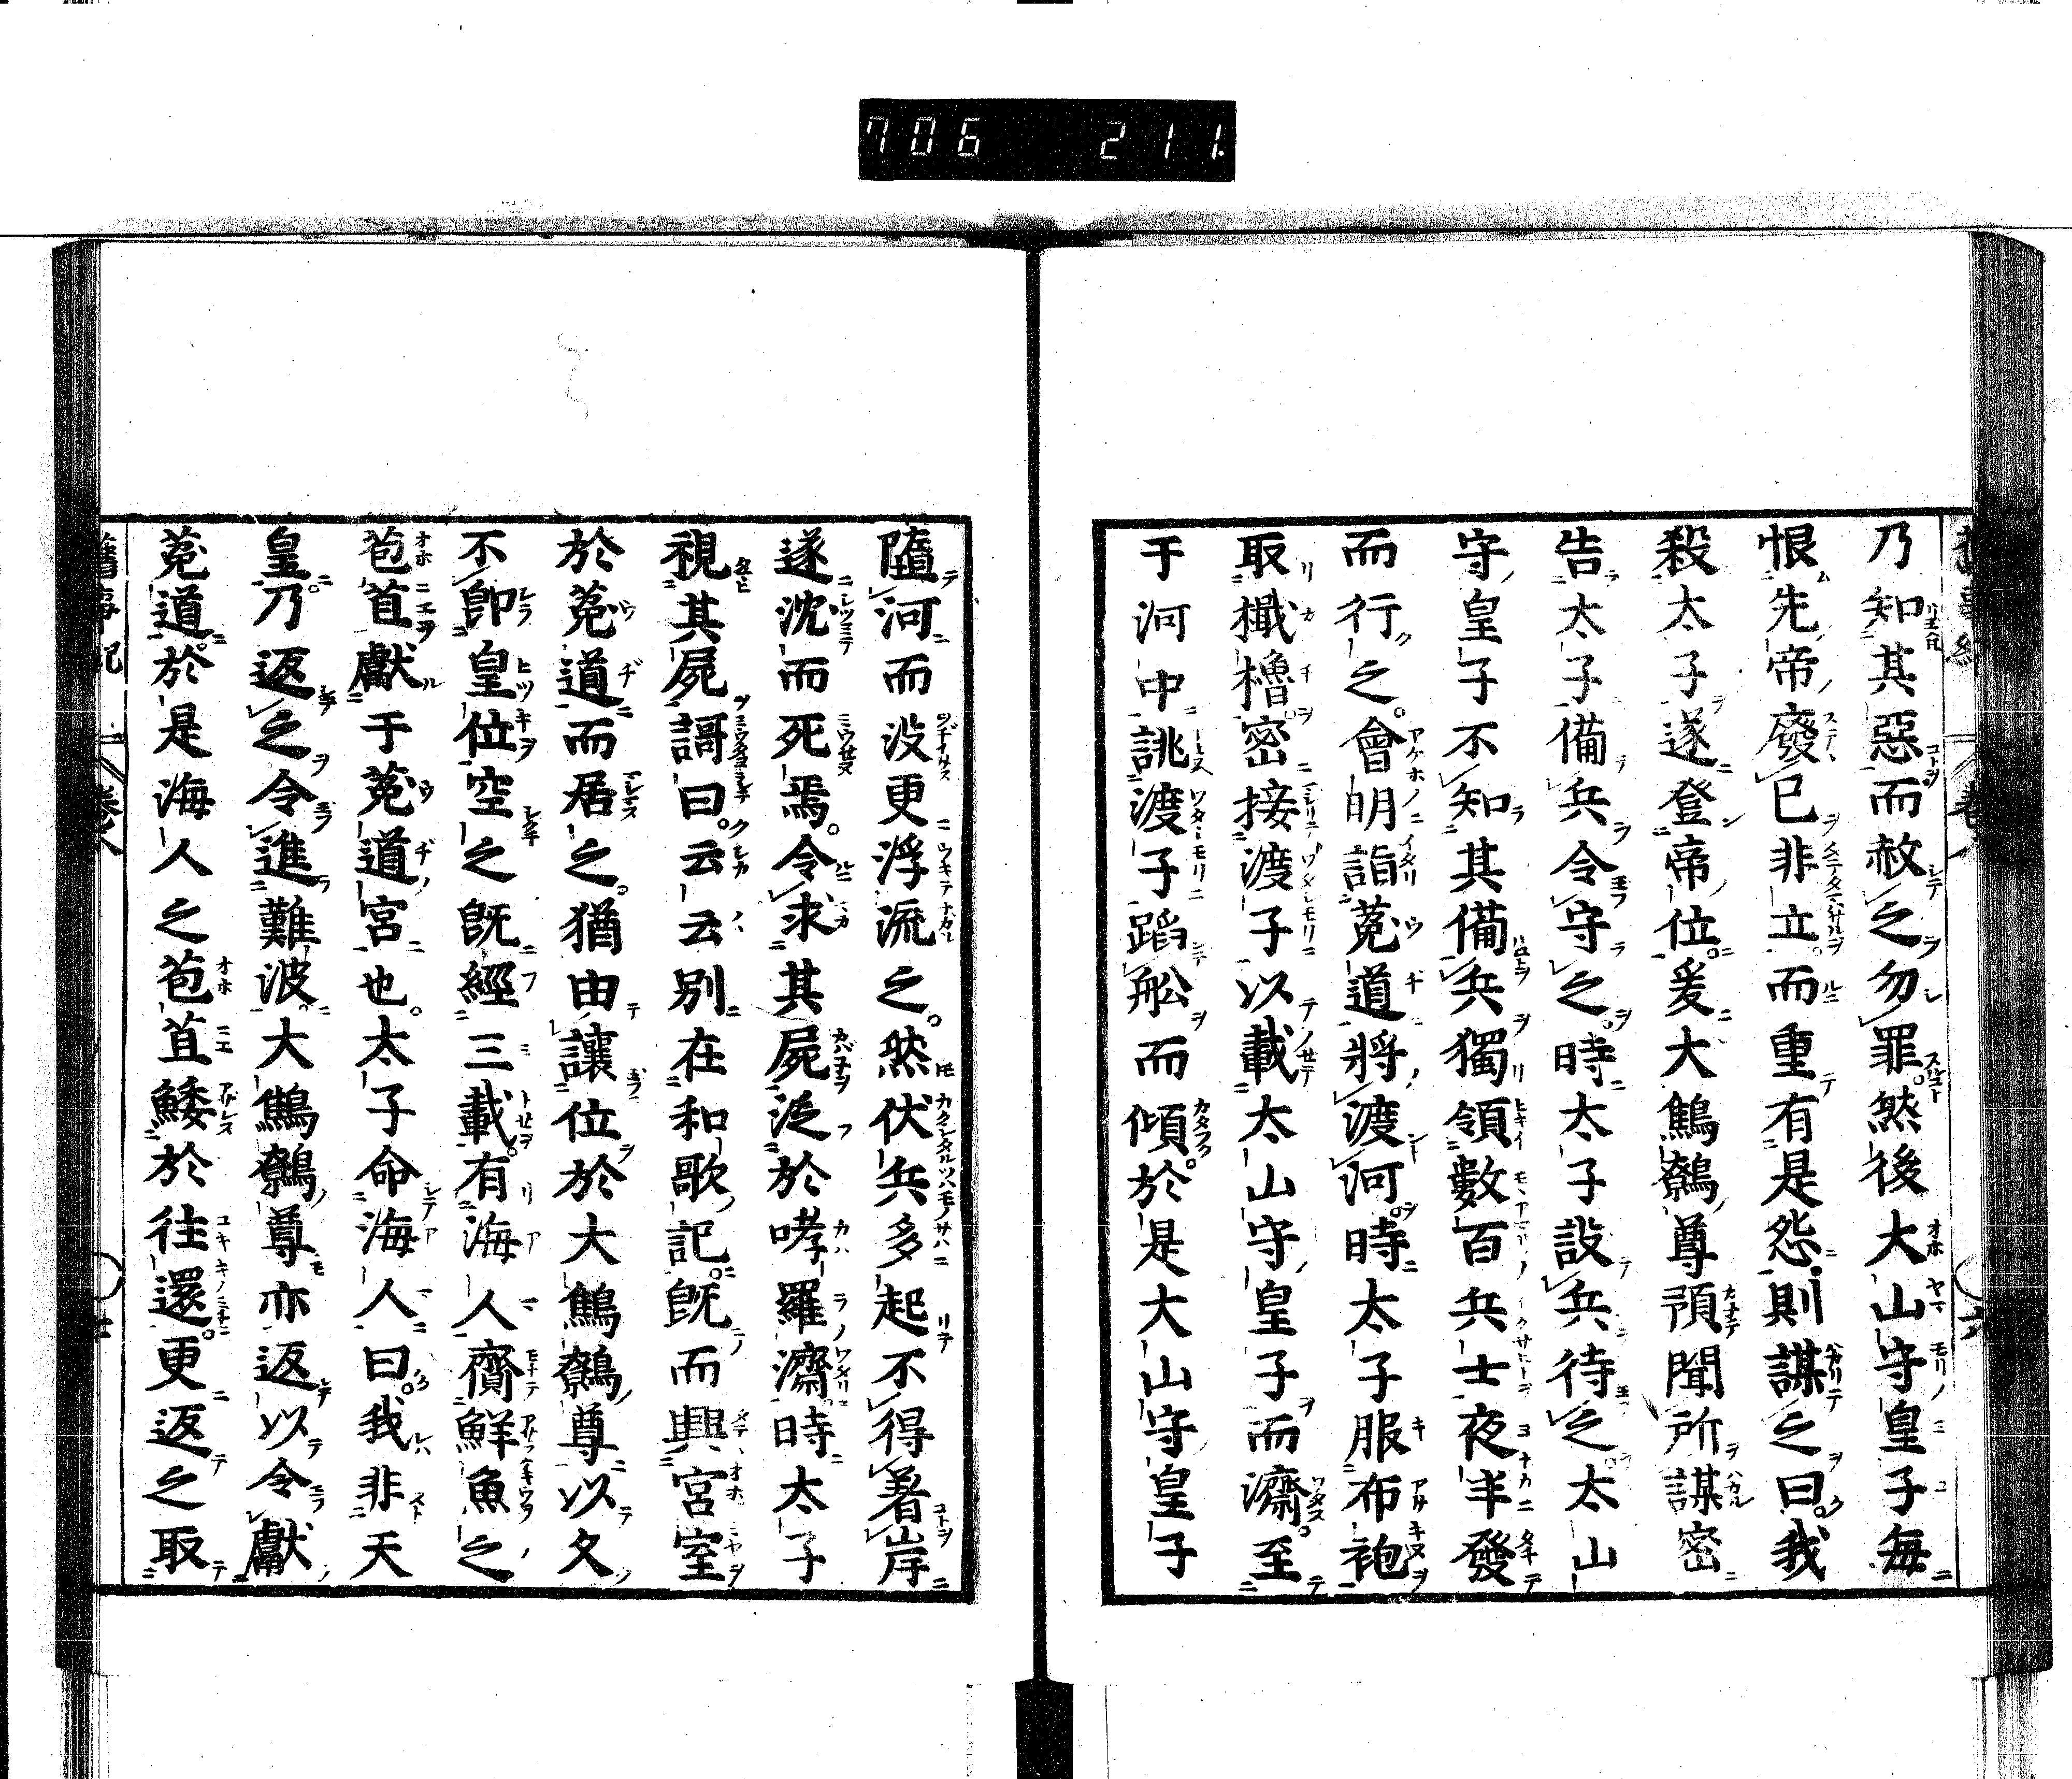 706 211
乃知其惡而赦之勿罪然後大山守皇子每
恨先帝廢已非立而重有是怨則謀之曰我
殺太子遂登帝位爰大鷦鷯尊預聞所謀密
告太子備兵令守之時太子設兵待之太山
守皇子不知其備兵獨領數百兵士夜半發
而行之會明詣菟道將渡河時太子服布袍
取檝櫓密接渡子以載太山守皇子而濟至
于河中誂渡子蹈舩而傾於是大山守皇子
墮河而沒更浮流之然伏兵多起不得著岸
遂沈而死焉令求其屍泛於哮羅濟時太子
視其屍謌曰云云別在和歌記旣而興宮室
於菟道而居之猶由讓位於大鷦鷯尊以久
不卽皇位空之旣經三載有海人齎鮮魚之
苞苴獻于菟道宮也太子命海人曰我非天
皇乃返之令進難波大鷦鷯尊亦返以令獻
菟道於是海人之苞苴鯘於往還更返之取